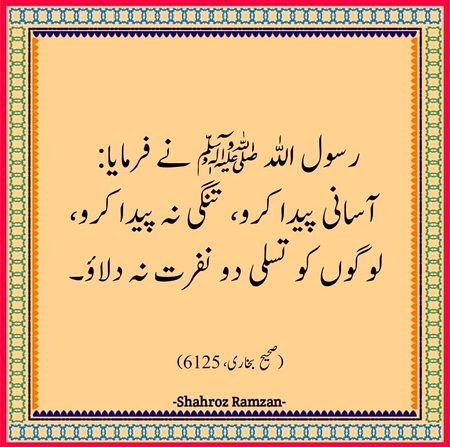 رسول اللہ ﷺ نے فرمایا:
آسانی پیدا کرو، تنگی نہ پیدا کرو،
لوگوں کو تسلی دو نفرت نہ دلاؤ۔
(صحیح بخاری، 6125)
-Shahroz Ramzan-